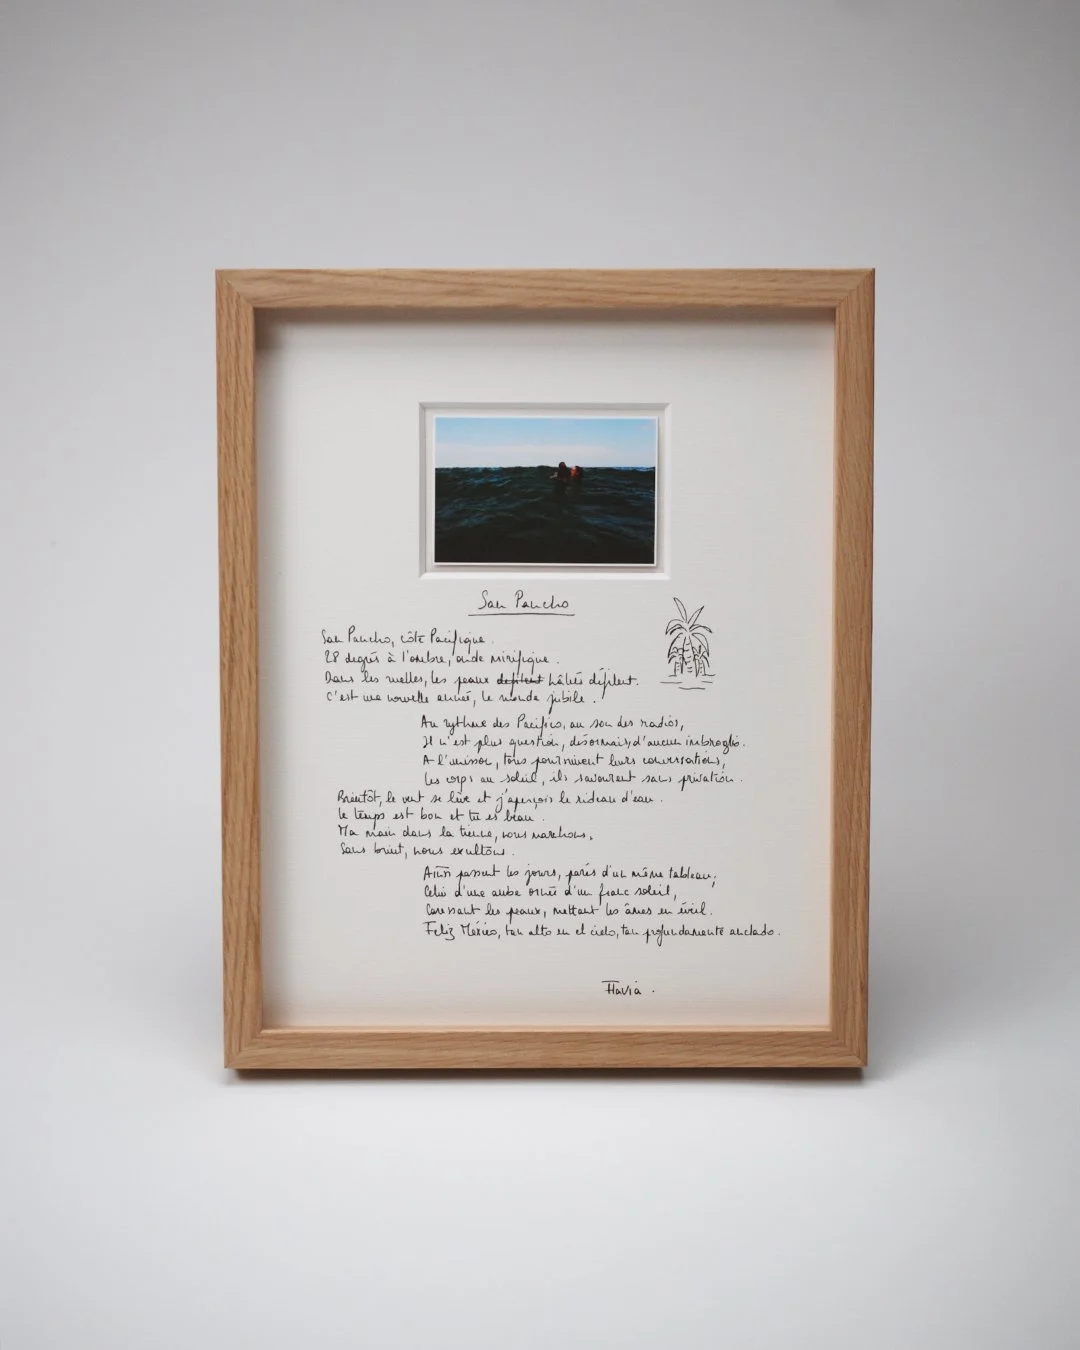 San Pancho
San Pancho, côte Pacifique.
28 degrés à l'ombre, onde mirifique.
Dans les ruelles, les peaux défilent hâlées défilent.
C'est une nouvelle année, le monde jubile.
Au rythme des Pacifico, au son des radios,
Il n'est plus question, désormais, d'aucun imbroglio.
A l'unisson, tous poursuivent leurs conversations,
Les corps au soleil, ils savourent sans privation.
Bientôt, le vent se lève et j'aperçois le rideau d'eau.
Le temps est bon et tu es beau.
Ma main dans la tienne, nous marchons.
Sans bruit, nous exultons.
Ainsi passent les jours, parés d'un même tableau;
Celui d'une aube ornée d'un franc soleil,
Caressant les peaux, mettant les âmes en éveil.
Feliz México, tan alto en el cielo, tan profundamente anclado.
Flavia.